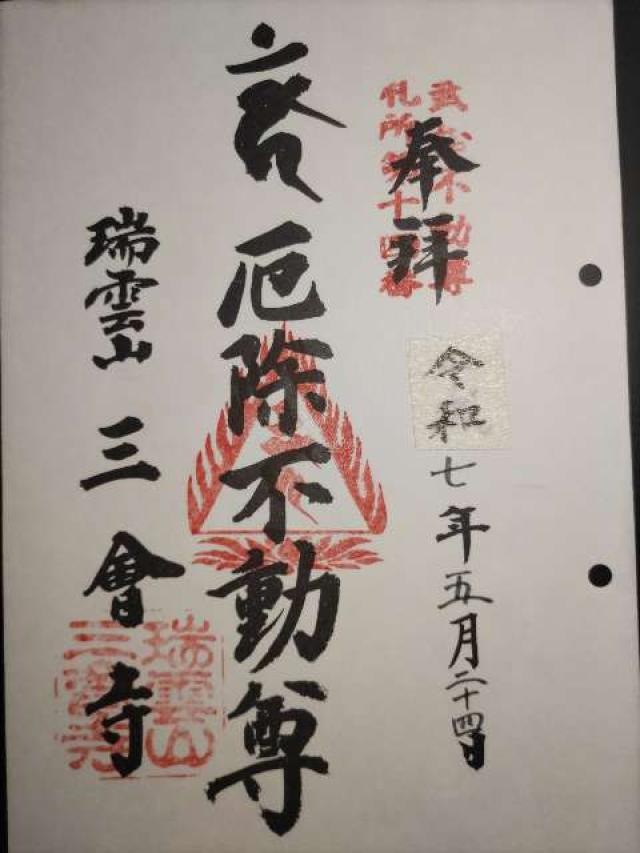 不動尊
札所第十四番
奉拝
令和七年五月二十四日
厄除不動尊
瑞雲山 三會寺
瑞雲山
三會寺